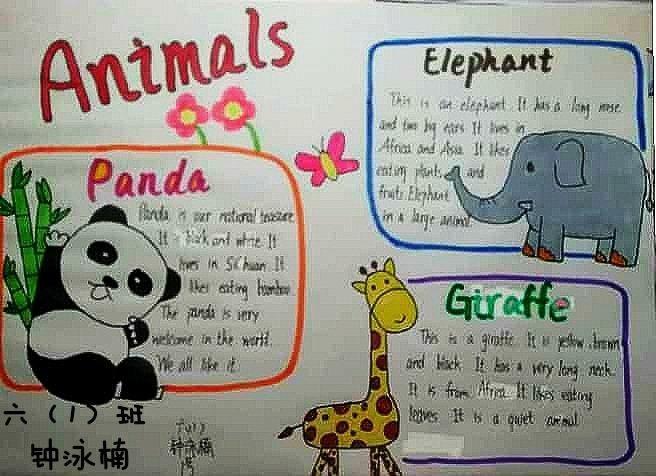 Animals
Elephant
This is an elephant. It has a long nose
and two big ears. It lives in
Africa and Asia. It likes
eating plants and
fruits. Elephant
is a large animal.
Panda
Panda is our national treasure.
It is black and white. It
lives in Si Chuan. It
likes eating bamboo.
The panda is very
welcome in the world.
We all like it.
Giraffe
This is a giraffe. It is yellow, brown
and black. It has a very long neck.
It is from Africa. It likes eating
leaves. It is a quiet animal.
六（1）班
钟泳楠
六(1)
钟泳楠